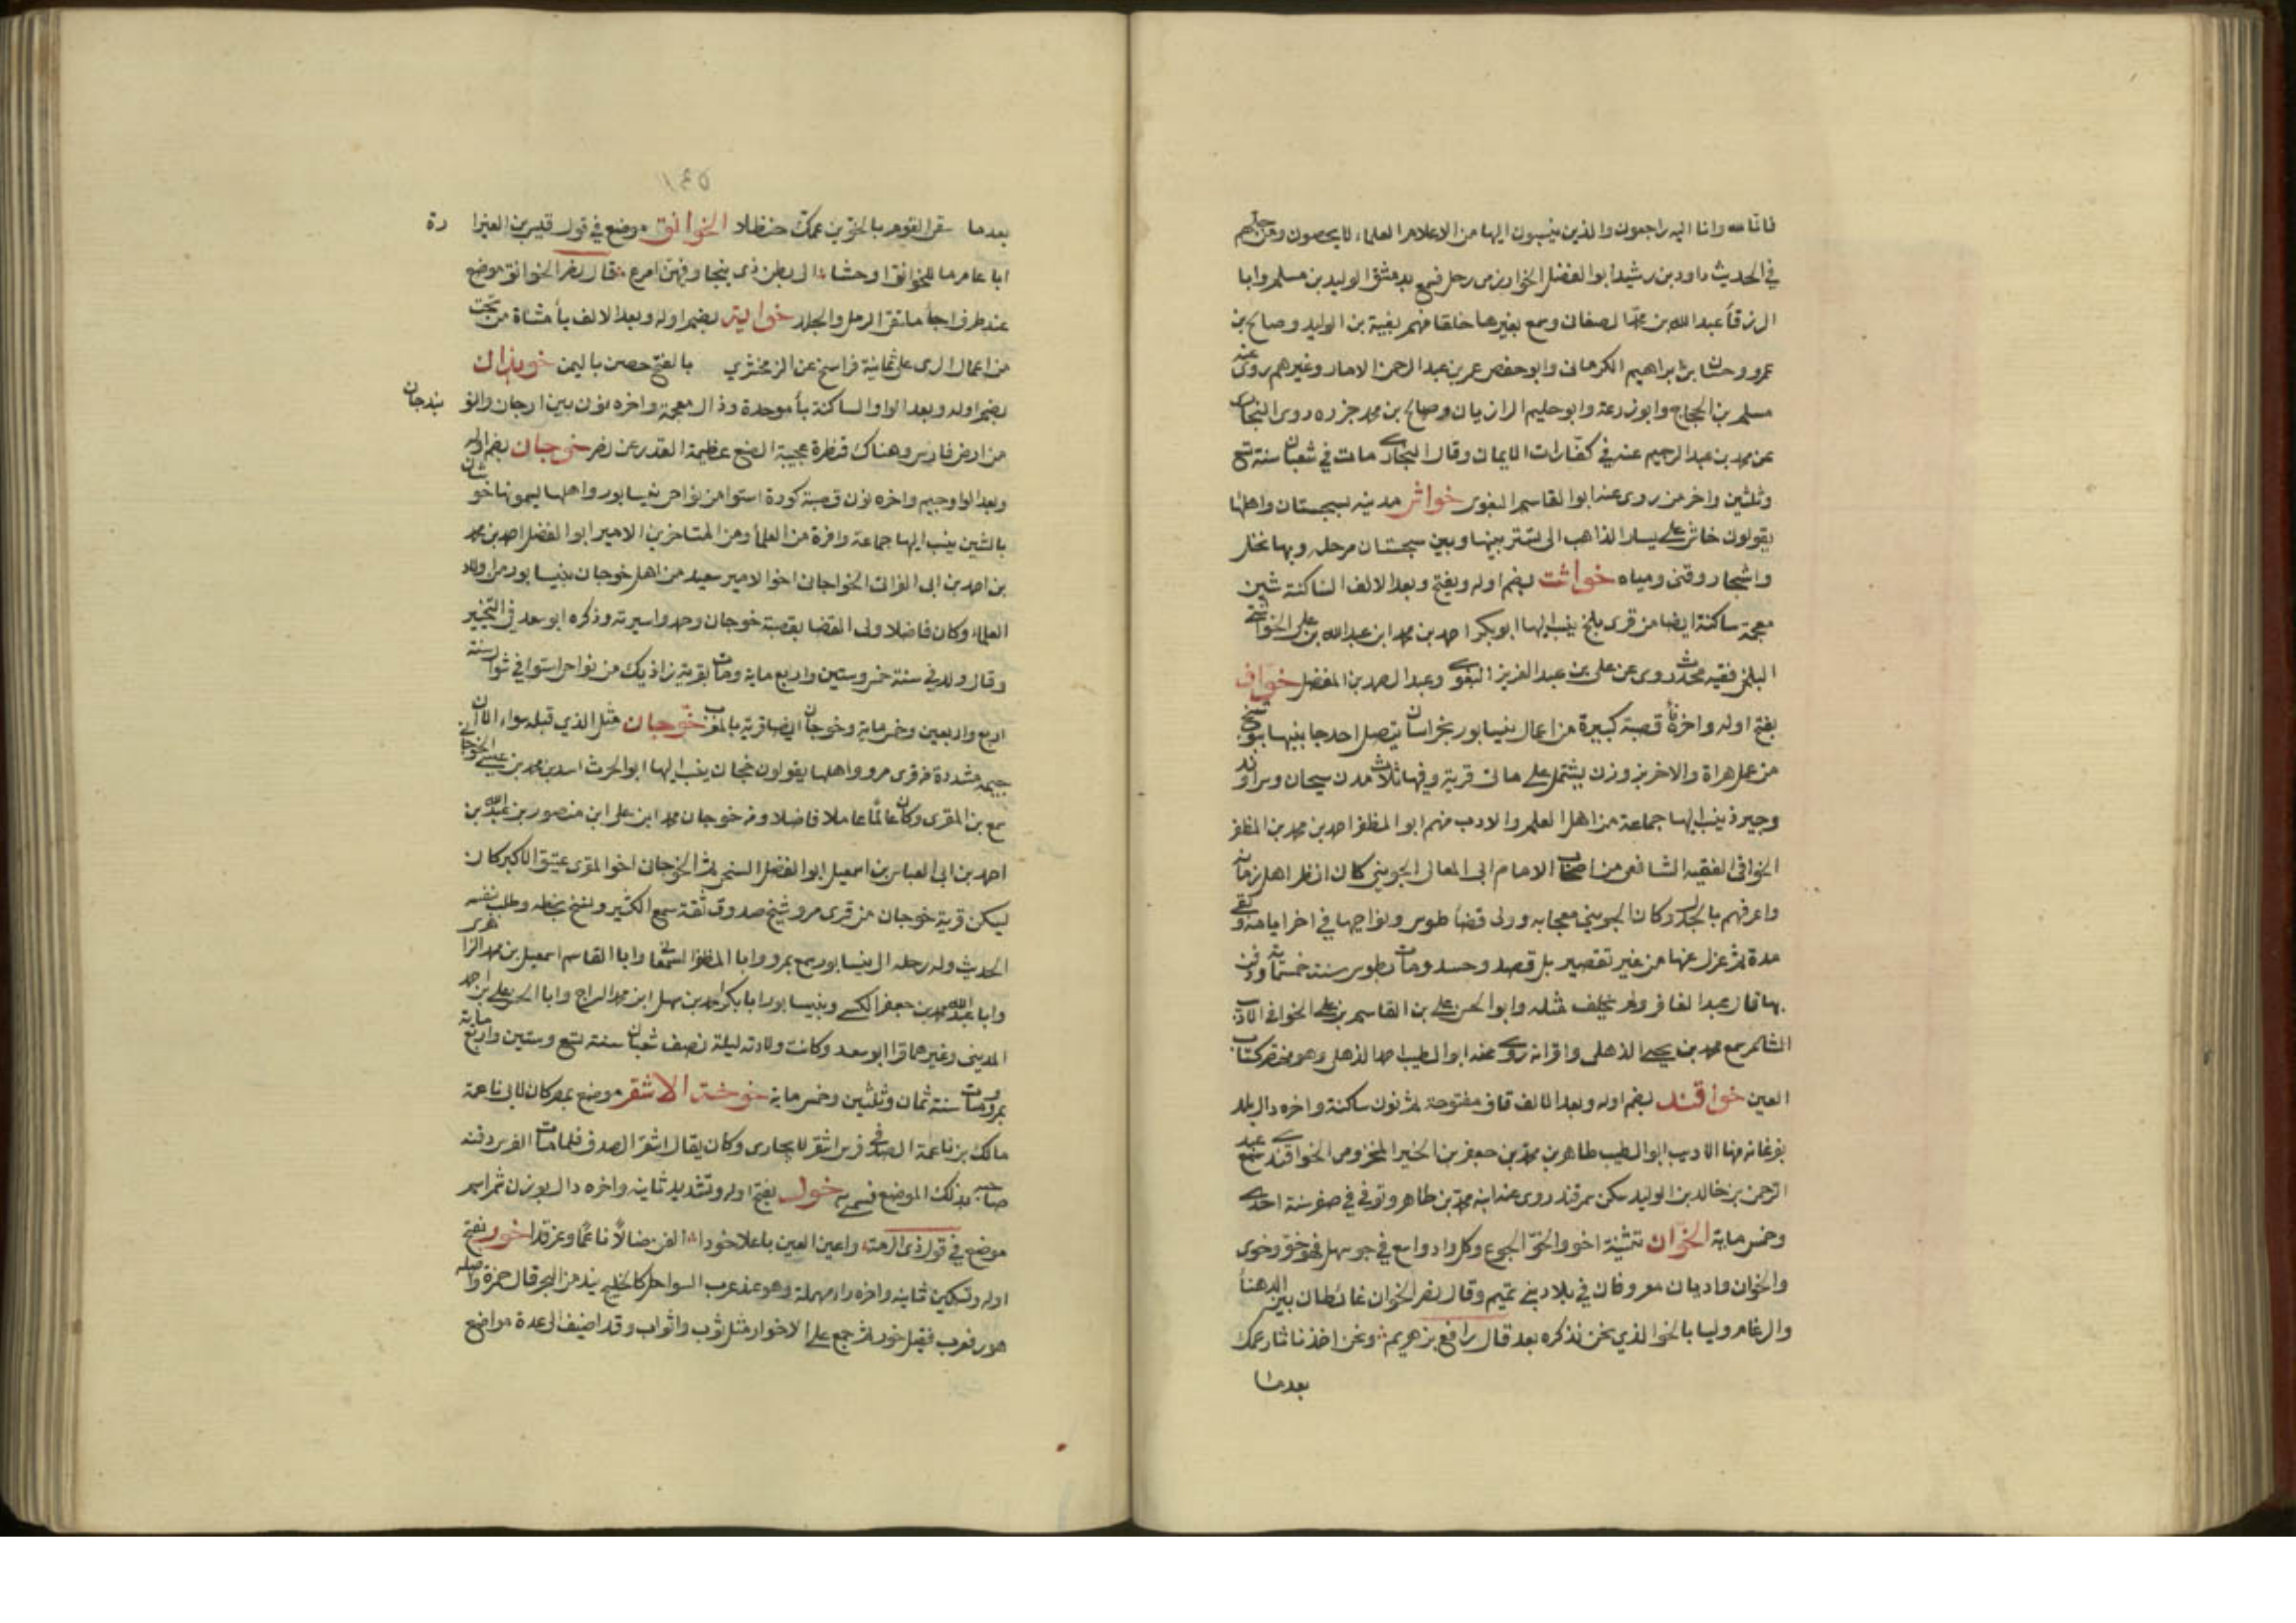 فانا لله وانا اليه راجعون والذين ينسبون اليها من الاعلام والعلماء لا يحصون ومن جملتهم
في الحديث داود بن رشيد ابو الفضل الخوارزمي رحل فسمع بدمشق الوليد بن مسلم وابا
الزرقأ عبد الله بن محمد الصغانى وسمع بغيرها خلقا منهم بقية بن الوليد وصالح بن
عمرو وحسان بن ابراهيم الكرمانى وابو حفص عمر بن عبد الرحمن الابار وغيرهم روى عنه
مسلم بن الحجاج وابو زرعة وابو حليم الرازيان وصالح بن محمد جزره روى البخارى
عن محمد بن عبد الرحيم عنه في كفارات الايمان وقال البخارى مات في شعبان سنة تسع
وثلثين واخر من روى عنه ابو القاسم البغوى خواش مدينه بسجستان واهلها
يقولون خاش على يسار الذاهب الى تستر بينها وبين سجستان مرحله وبها نخل
واشجار وقنى ومياه خواشت بضم اوله ويفتح وبعد الالف الساكنة شين
معجمة ساكنة ايضا من قرى بلخ ينسب اليها ابو بكر احمد بن محمد ابن عبد الله بن على الخواشتى
البلخى فقيه محدث روى عن على بن عبد العزيز البغوى وعبد الصمد بن المفضل خواف
بفتح اوله واخره فأ قصبة كبيرة من اعمال نيسابور بخراسان يتصل احد جانبيها ببوشنج
من عمل هراة والاخر بزوزن يشتمل على مائة قرية وفيها ثلاث مدن سيجان وسراوند
وجيرد ينسب اليها جماعة من اهل العلم والادب منهم ابو المظفر احمد بن محمد بن المظفر
الخوافى الفقيه الشافعى من اصحاب الامام ابى المعالى الجوينى كان انظر اهل زمانه
واعرفهم بالجدل وكان الجوينى معجبا به وولى قضا طوس ونواحيها في اخر ايامه وبقى
مدة ثم عزل عنها من غير تقصير بل قصد وحسد ومات بطوس سنة خمسمائة ودفن
بها قال عبد الغافر ولم يخلف مثله وابو الحسن على بن القاسم بن على الخوافى الاديب
الشاعر سمع محمد بن يحيى الذهلى واقرانه روى عنه ابو الطيب احمد الذهلى وهو مختصر كتاب
العين خواقند بضم اوله وبعد الالف قاف مفتوحة ثم نون ساكنة واخره دال بلد
بفرغانه منها الاديب ابو الطيب طاهر بن محمد بن جعفر بن الخير المخزومى الخواقندى سمع عبد
الرحمن بن خالد بن الوليد سكن سمرقند روى عنه ابنه محمد بن طاهر وتوفي في صفر سنة احدى
وخمس ماية الخوان تثنية اخو والخو الجوع وكل واد واسع في جو سهل فهو خو وخوى
والخوان واديان معروفان في بلاد بنى تميم وقال نصر الخوان غائطان بين الدهنأ
والرغام وليسا بالخو الذى نحن نذكره بعد قال رافع بن هريم ونحن اخذنا ثار عمك
بعدما
١٤٥
بعدما سقى القوم بالخوين عمك حنظلا الخوانق موضع في قول قيس بن العيزارة
ابا عامر ما للخوانق اوحشا الى بطن ذى ينجا وفيهن امرع قال نصر الخوانق موضع
عند طرف اجأ ملتقى الرمل والجلد خواية بضم اوله وبعد الالف يأ مثناة من تحت
من اعمال الرى على ثمانية فراسخ عن الزمخشري بالفتح حصن باليمن خوبذان
بضم اوله وبعد الواو الساكنة بأ موحدة وذال معجمة واخره نون بين ارجان والنوبندجان
من ارض فارس وهناك قنطرة عجيبة الصنع عظيمة القدر عن نصر خوجان بضم اوله
وبعد الواو جيم واخره نون قصبة كورة استوا من نواحى نيسابور واهلها يسمونها خوشان
بالشين ينسب اليها جماعة وافرة من العلمأ ومن المتاخرين الامير ابو الفضل احمد بن محمد
بن احمد بن ابى الفرات الخواجانى اخو الامير سعيد من اهل خوجان بنيسابور من اولاد
العلماء وكان فاضلا ولى القضا بقصبة خوجان وحمدوا سيرته وذكره ابو سعد في التحبير
وقال ولد في سنة خمس وستين واربع ماية ومات بقرية زاذيك من نواحى استوا في شوال سنة
اربع واربعين وخمس ماية وخوجان ايضا قرية بالمغرب خوجان مثل الذي قبله سواء الا ان
جيمه مشددة من قرى مرو واهلها يقولون خجان ينسب اليها ابو الحرث اسد بن محمد بن عيسى الخوجانى
سمع بن المقرى وكان عالمًا عاملا فاضلا ومن خوجان محمد ابن على ابن منصور بن عبد الله بن
احمد بن ابى العباس بن اسمعيل ابو الفضل السنجى ثم الخوجانى اخو المقرى عتيق الاكبر كان
ليسكن قرية خوجان من قرى مرو شيخ صدوق ثقة سمع الكثير ونسخ بخطه وطلب بنفسه
الحديث وله رحله الى نيسابور سمع بمرو وابا المظفر السمعانى وابا القاسم اسمعيل بن محمد الزاهرى
وابا عبد الله محمد بن جعفر الكسى وبنيسابور ابا بكر احمد بن سهل ابن محمد السراج وابا الحسن على بن احمد
المدينى وغيرهما قرا ابو سعد وكانت ولادته ليلة نصف شعبان سنة تسع وستين واربع ماية
بمرو ومات سنة ثمان وثلثين وخمس ماية خوخة الاشقر موضع بمصر كان لابى ناعمة
مالك بن ناعمة الصدفى فرس اشقر لا يجارى وكان يقال اشقر الصدف فلما مات الفرس دفنه
صاحبه بذلك الموضع فسمى به خود بفتح اوله وتشديد ثانيه واخره دال بوزن شمر اسم
موضع في قول ذى الرمة واعين العين باعلا خودا الفن ضالًا ناعمًا وغرقدا خور بفتح
اوله وتسكين ثانيه واخره راء مهملة وهو عند عرب السواحل كالخليج يند من البحر قال حمزة واصله
هور فعرب فقيل خور ثم جمع على الاخوار مثل ثوب واثواب وقد اضيف الى عدة مواضع